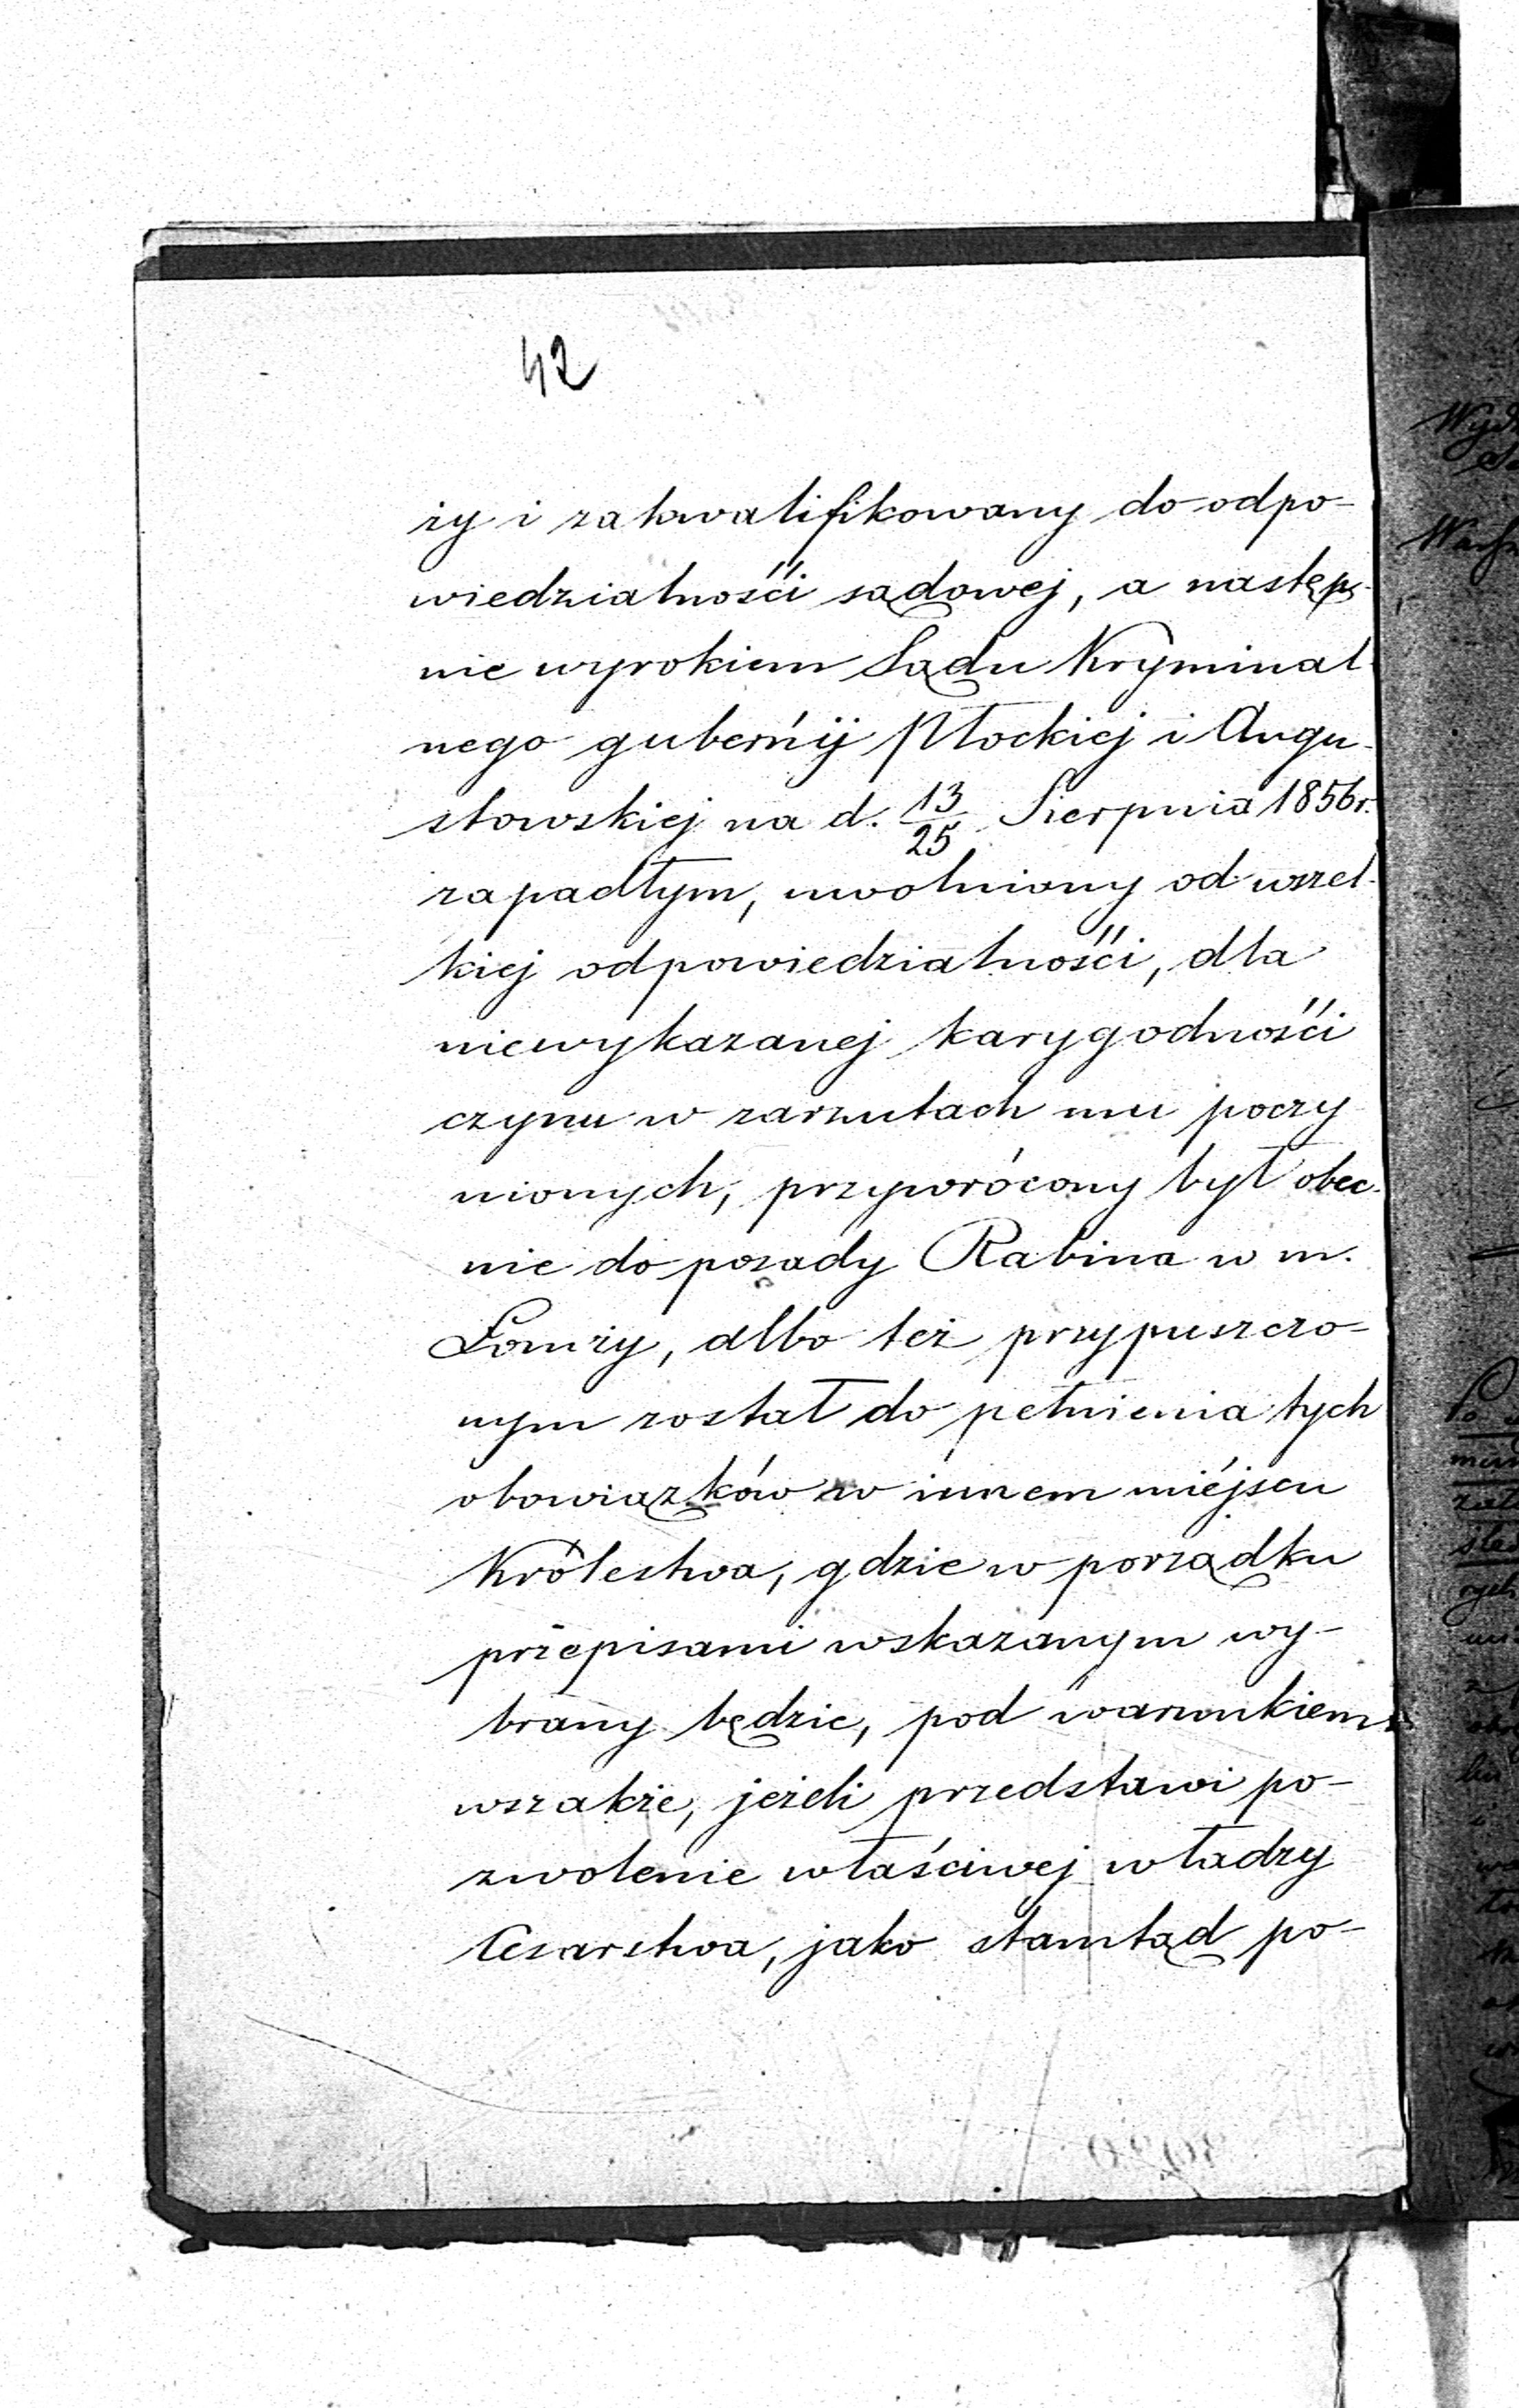 42
ży i zakwalifikowany do odpo-
wiedzialnośći sądowej, a następ-
nie wyrokiem Sądu Kryminal-
nego gubernÿ Płockiej i Augu-
stowskiej na d. 13/25 Sierpnia 1856 r.
zapadłym, uwolniony od wszel-
kiej odpowiedzialnośći, dla
niewykazanej karygodnośći
czynu w zarzutach mu poczy
nionych, przywrócony był obec-
nie do posady Rabina w m.
Łomży, albo też przypuszczo-
nym został do pełnienia tych
obowiązków w innem miéjscu
Królestwa, gdzie w porządku
przepisami wskazanym wy-
brany będzie, pod warunkiem
wszakże, jeżeli przedstawi po-
zwolenie właściwej władzy
Cesarstwa, jako stamtąd po-